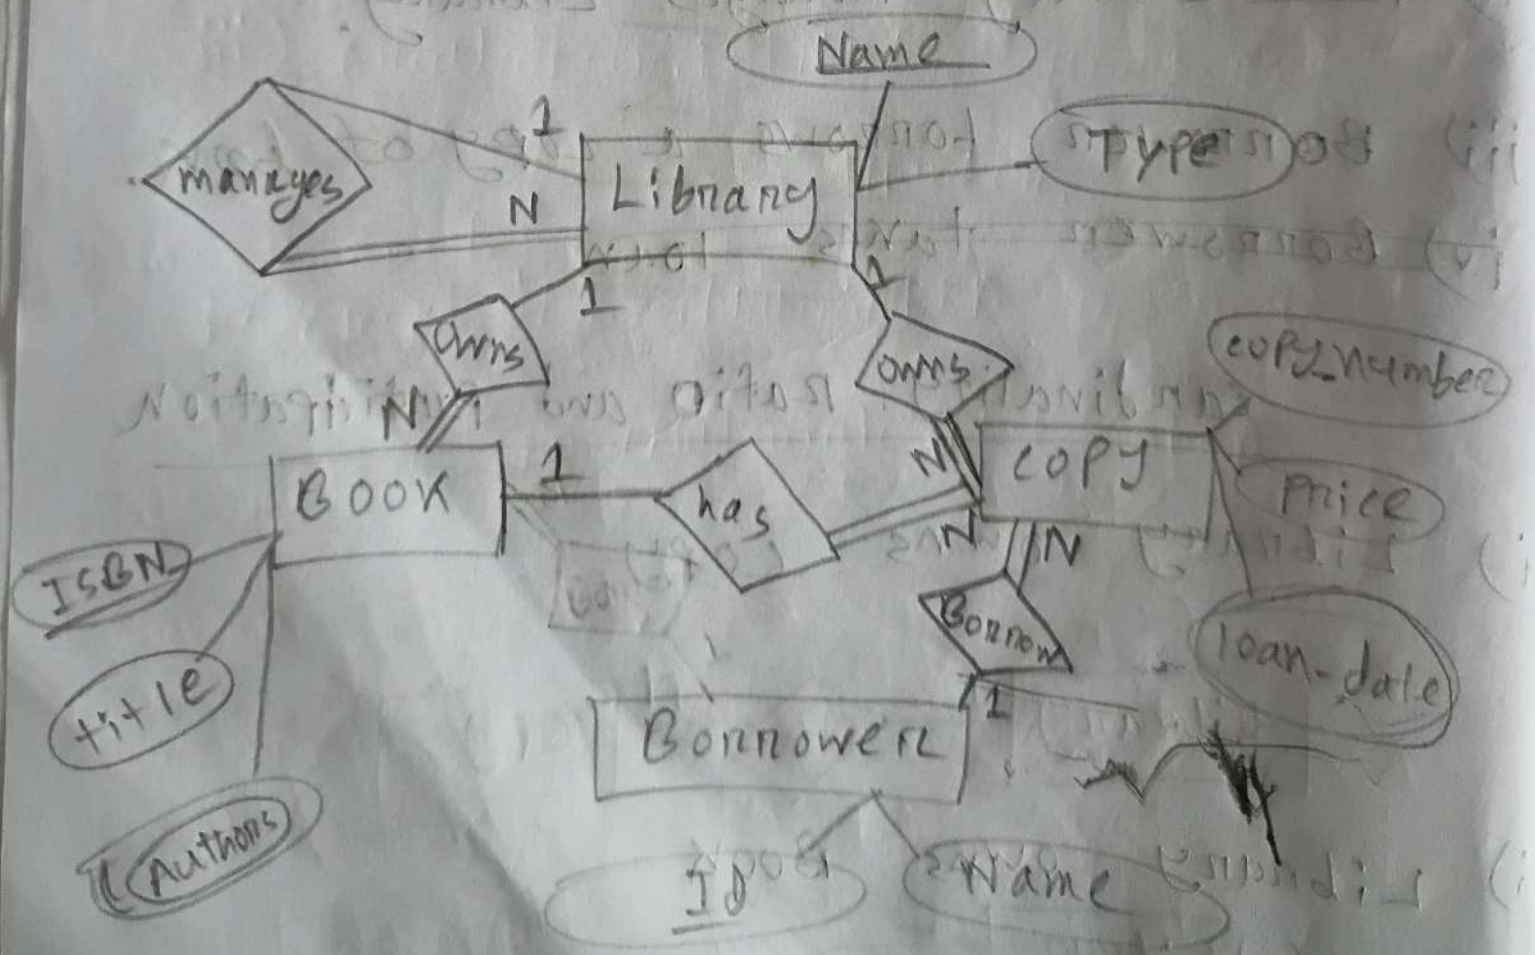 Name
manages
1
N
Library
Type
1
1
owns
owns
copy_number
N
N
BOOK
1
has
N
COPY
Price
N
ISBN
Borrow
loan_date
title
1
Borrower
Authors
ID
Name